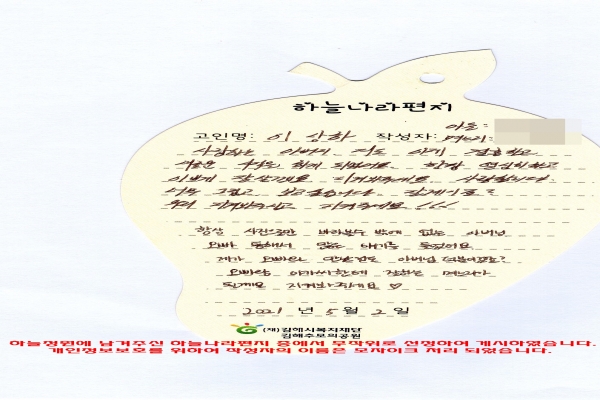 하늘나라편지
고인명: 이 상하 작성자: 아들:
며느리:
사랑하는 아버지 저도 이제 결혼하고
한 열심히 하고
이쁘게 잘 살건데 지켜봐주세요 사랑합니다.
너무 그립고 보고싶습니다 잘 계시죠?
우리 지켜봐주시고 지켜주세요!!!
항상 사진으로만 바라볼수 밖에 없는 아버님
오빠 통해서 많은 얘기를 들었어요
제가 오빠와 만난것도 아버님 덕분이죠?
오빠랑 아가씨한테 잘하는 며느리가
될께요 지켜봐주세요 ♡
2021 년 5 월 2 일
(재)김해시복지재단
김해추모의공원
하늘정원에 남겨주신 하늘나라편지 중에서 무작위로 선정하여 게시하였습니다.
개인정보보호를 위하여 작성자의 이름은 모자이크 처리 되었습니다.